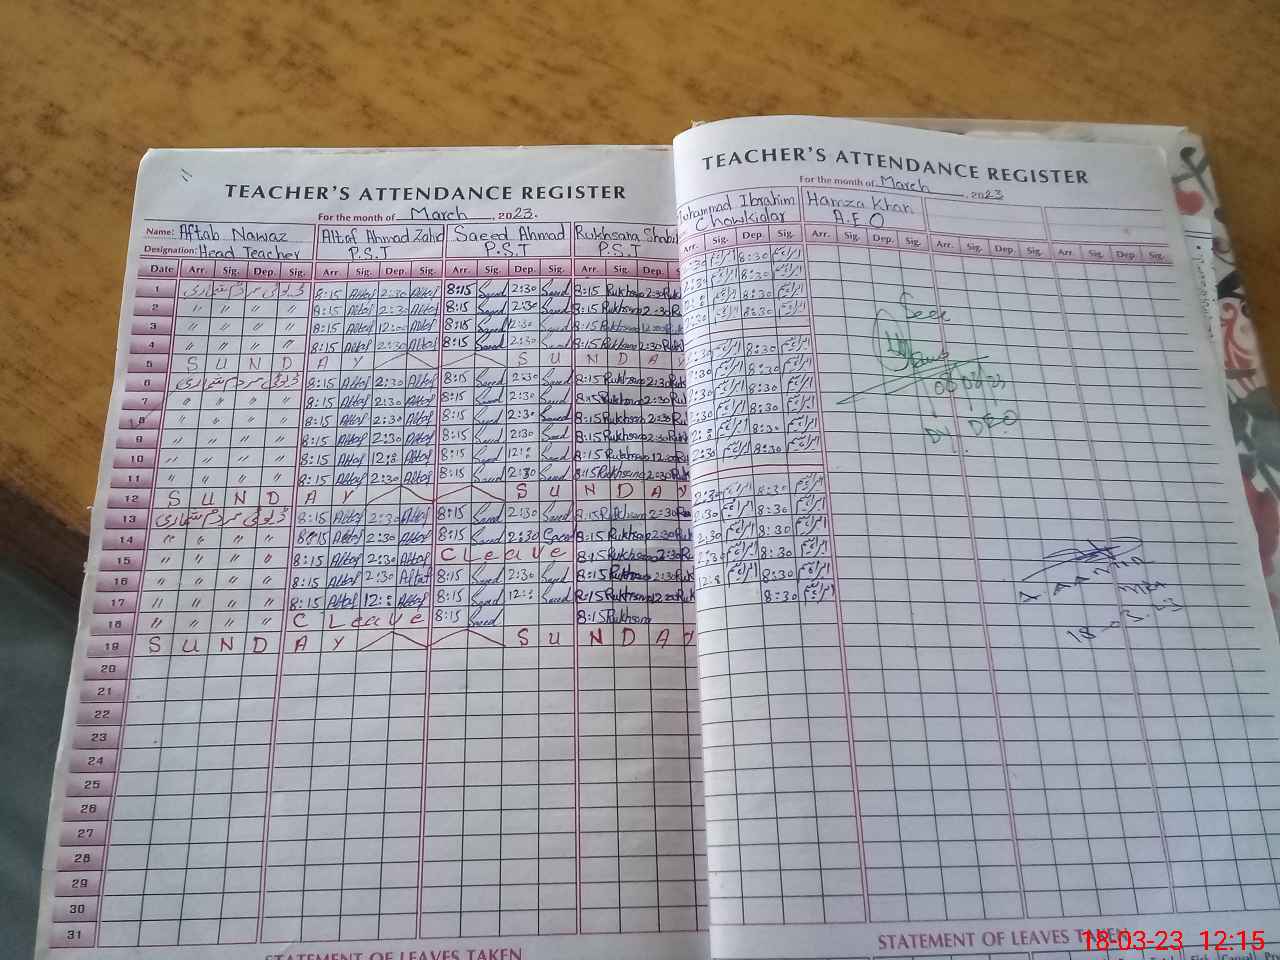 TEACHER'S ATTENDANCE REGISTER
For the month of March, 2023.
Name: Aftab Nawaz Altaf Ahmad Zahid Saeed Ahmad Rukhsana
Designation: Head Teacher P.S.T P.S.T P.S.T
Date Arr. Sig. Dep. Sig. Arr. Sig. Dep. Sig. Arr. Sig. Dep. Sig. Arr. Sig. Dep.
1 ڈیوٹی مردم شماری 8:15 Altaf 2:30 Altaf 8:15 Saeed 2:30 Saeed 8:15 Rukhsana 2:30
2 " " " " 8:15 Altaf 2:30 Altaf 8:15 Saeed 2:30 Saeed 8:15 Rukhsana 2:30
3 " " " " 8:15 Altaf 12:00 Altaf 8:15 Saeed 12:30 Saeed 8:15 Rukhsana
4 " " " " 8:15 Altaf 2:30 Altaf 8:15 Saeed 2:30 Saeed 8:15 Rukhsana 2:30
5 S U N D A Y S U N D A Y
6 ڈیوٹی مردم شماری 8:15 Altaf 2:30 Altaf 8:15 Saeed 2:30 Saeed 8:15 Rukhsana 2:30
7 " " " " 8:15 Altaf 2:30 Altaf 8:15 Saeed 2:30 Saeed 8:15 Rukhsana 2:30
8 " " " " 8:15 Altaf 2:30 Altaf 8:15 Saeed 2:30 Saeed 8:15 Rukhsana 2:30
9 " " " " 8:15 Altaf 2:30 Altaf 8:15 Saeed 2:30 Saeed 8:15 Rukhsana 2:30
10 " " " " 8:15 Altaf Altaf 8:15 Saeed Saeed 8:15 Rukhsana
11 " " " " 8:15 Altaf 2:30 Altaf 8:15 Saeed 2:30 Saeed 8:15 Rukhsana 2:30
12 S U N D A Y S U N D A Y
13 ڈیوٹی مردم شماری 8:15 Altaf 2:30 Altaf 8:15 Saeed 2:30 Saeed 8:15 Rukhsana 2:30
14 " " " " 8:15 Altaf 2:30 Altaf 8:15 Saeed 2:30 Saeed 8:15 Rukhsana 2:30
15 " " " " 8:15 Altaf 2:30 Altaf C Leave 8:15 Rukhsana 2:30
16 " " " " 8:15 Altaf 2:30 Altaf 8:15 Saeed 2:30 Saeed 8:15 Rukhsana 2:30
17 " " " " 8:15 Altaf Altaf 8:15 Saeed Saeed 8:15 Rukhsana
18 " " " " C Leave 8:15 Saeed 8:15 Rukhsana
19 S U N D A Y S U N D A Y
20
21
22
23
24
25
26
27
28
29
30
31
STATEMENT OF LEAVES TAKEN
TEACHER'S ATTENDANCE REGISTER
For the month of March, 2023
Mohammad Ibrahim Hamza Khan
Chowkidar A.E.O
Arr. Sig. Dep. Sig. Arr. Sig. Dep. Sig. Arr. Sig. Dep. Sig. Arr. Sig. Dep. Sig.
2:30 ابراہیم 8:30 ابراہیم
2:30 ابراہیم 8:30 ابراہیم
ابراہیم 8:30 ابراہیم
2:30 ابراہیم 8:30 ابراہیم
2:30 ابراہیم 8:30 ابراہیم
2:30 ابراہیم 8:30 ابراہیم
2:30 ابراہیم 8:30 ابراہیم
2:30 ابراہیم 8:30 ابراہیم
ابراہیم 8:30 ابراہیم
2:30 ابراہیم 8:30 ابراہیم
2:30 ابراہیم 8:30 ابراہیم
2:30 ابراہیم 8:30 ابراہیم
2:30 ابراہیم 8:30 ابراہیم
2:30 ابراہیم 8:30 ابراہیم
ابراہیم 8:30 ابراہیم
8:30 ابراہیم
Seen
Dy. DEO
MEA
18-03-23
STATEMENT OF LEAVES TAKEN
18-03-23 12:15